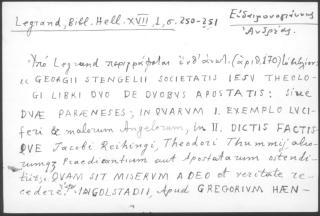 Legrand, Bibl. Hell. XVII, 1, σ. 250-251
Εὐδαιμονογιάννης
Ἀνδρέας.
Ὑπὸ Legrand περιγράφεται ἐνθ' ἀνωτ. (ἀρ. 170) τὸ βιβλίον
GEORGII STENGELII SOCIETATIS IESV THEOLO-
GI LIBRI DVO DE DVOBVS APOSTATIS: sive
DVÆ PARÆNESES; IN QVARVM I. EXEMPLO LVCI-
feri & malorum Angelorum, in II. DICTIS FACTIS
QVE Jacobi Reihingi, Theodori Thummij alio-
rumq Praedicantium aut Apostatarum ostendi-
tur, QVAM SIT MISERVM A DEO et veritate re-
cedere. INGOLSTADII, Apud GREGORIVM HÆN-